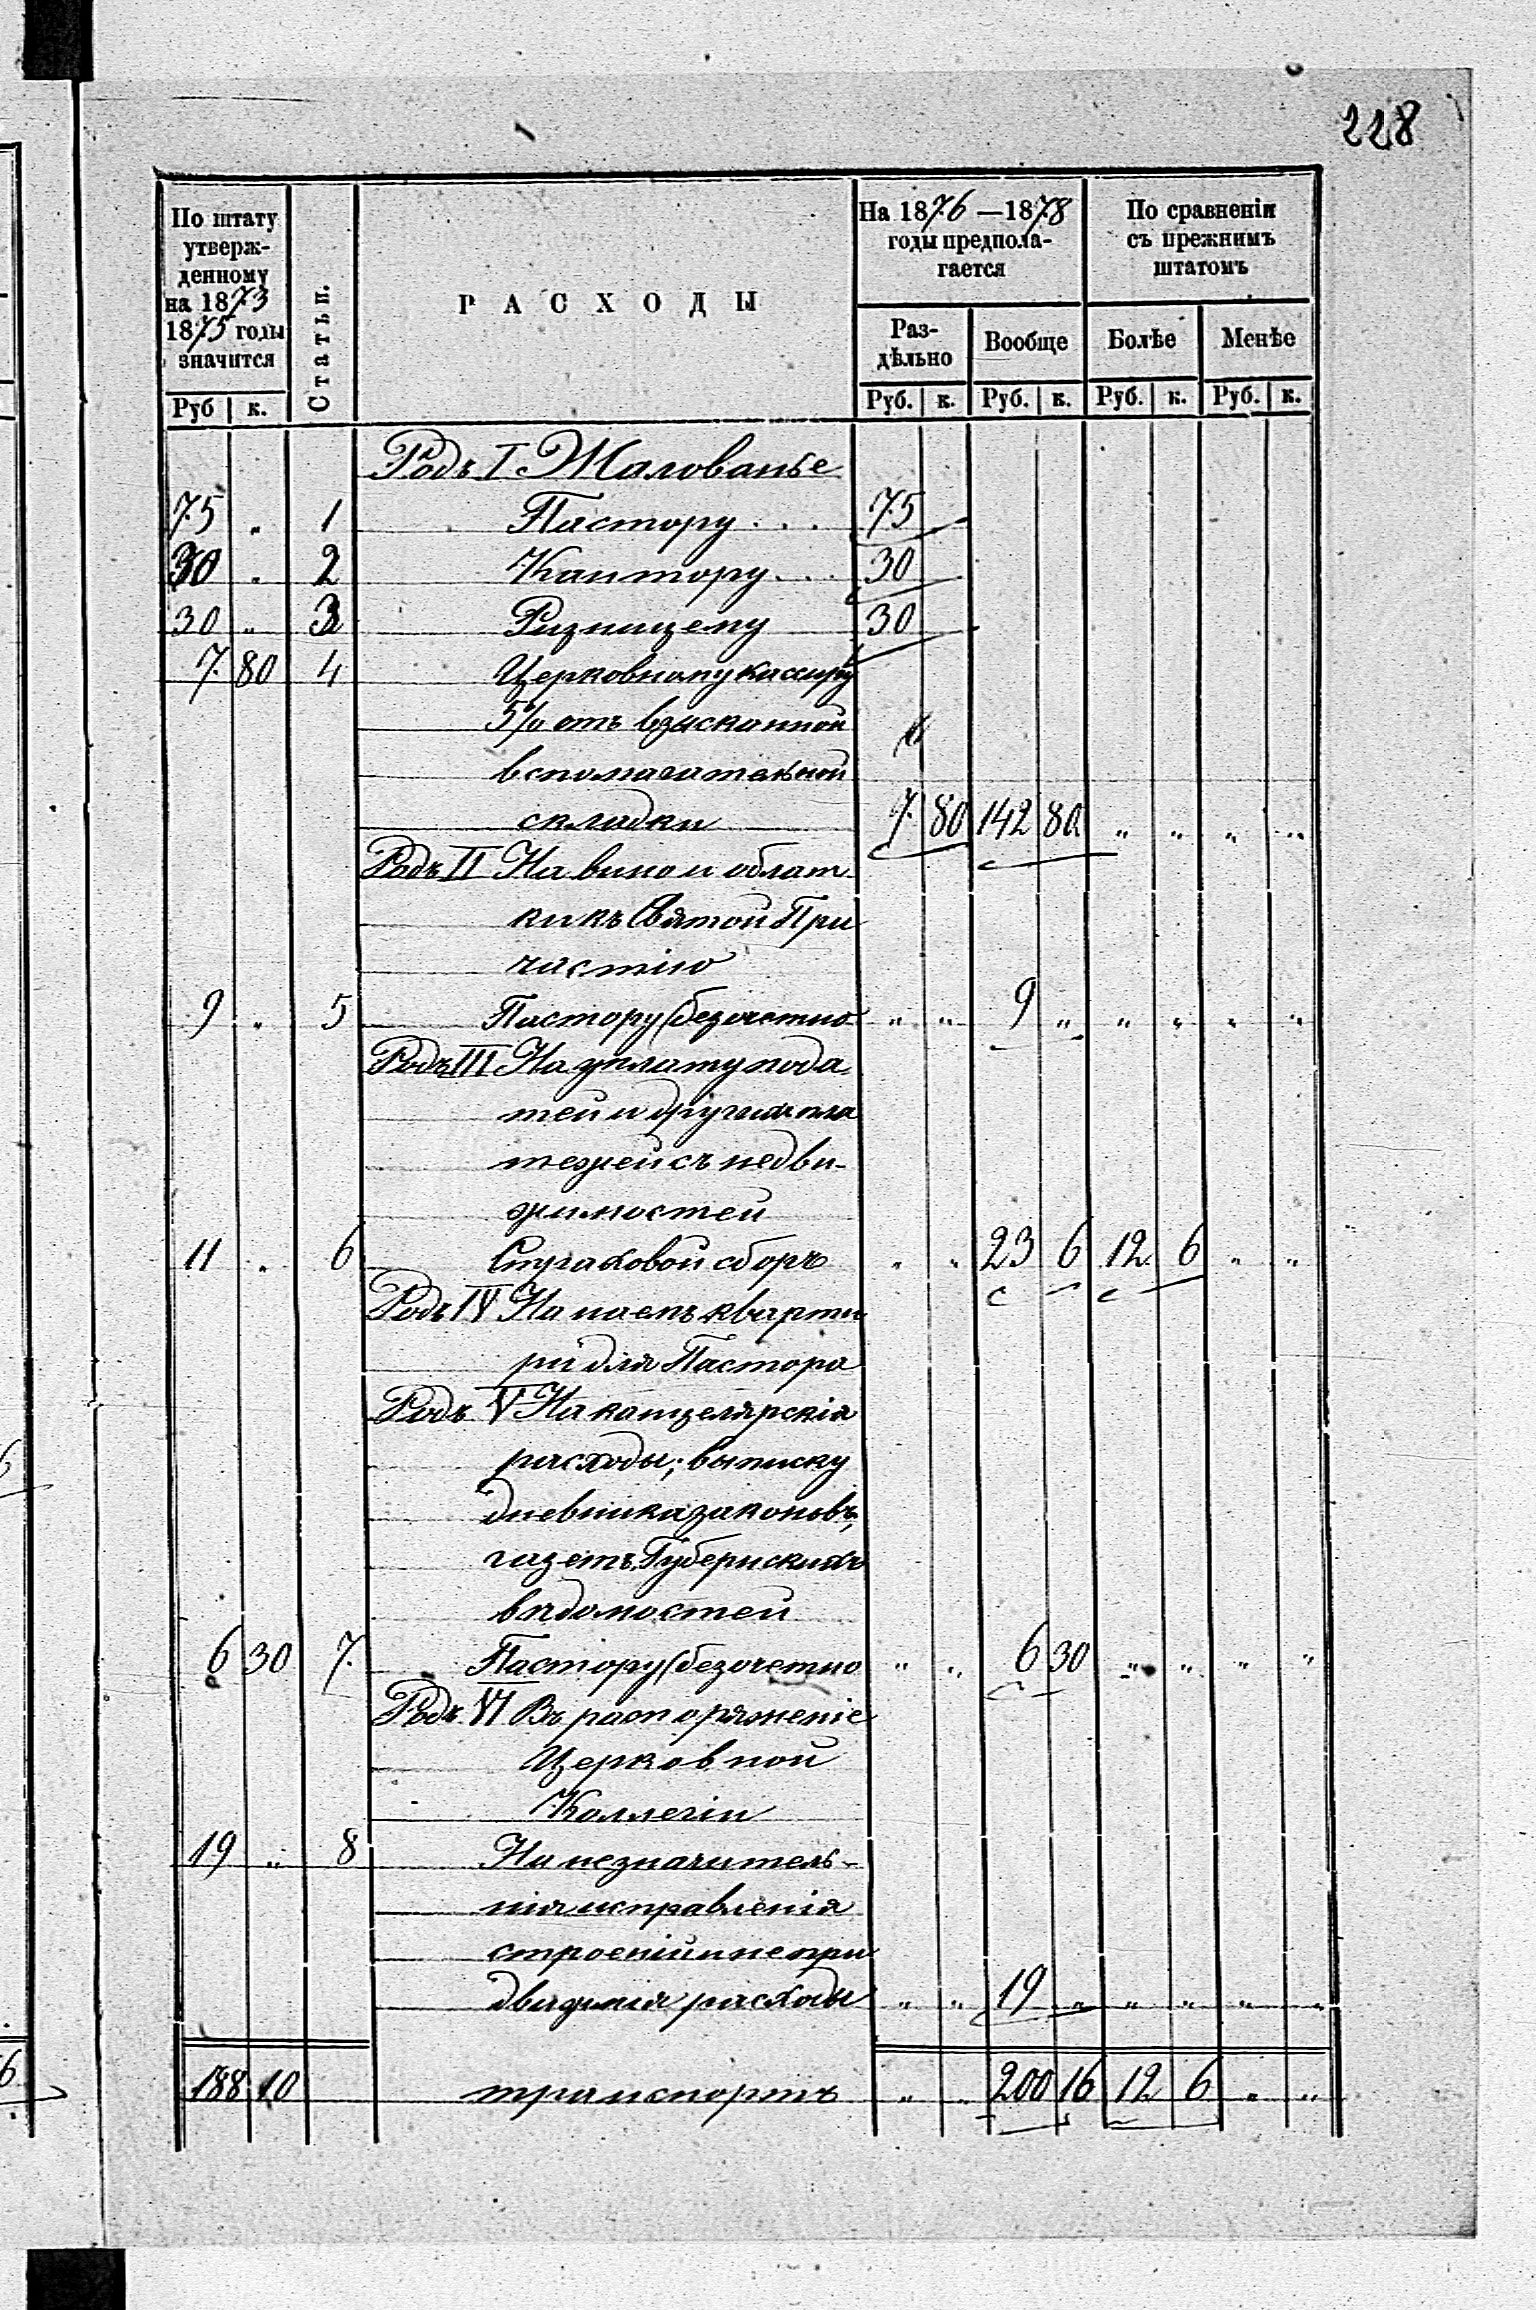 228
По штату утверж- денному на 1873 1875 годы значится
Статьи.
РАСХОДЫ
На 1876 — 1878 годы предпола- гается
По сравненіи съ прежнимъ штатомъ
Раз- дѣльно
Вообще
Болѣе
Менѣе
Руб к. Руб. к. Руб. к. Руб. к. Руб. к.
Родъ I Жалованье
75 „ 1 Пастору . . . 75
30 „ 2 Кантору . . . 30
30 „ 3 Ризничему 30
7 80 4 Церковному кассиру
5% отъ взысканной
вспомагательной
складки 7 80 142 80 „ „ „ „
Родъ II На вино и облат
ки къ Святой При
частію
9 „ 5 Пастору (безочетно „ „ 9 „ „ „ „ „
Родъ III На уплату пода
тей и другихъ пла
тежей съ недви-
жимостей
11 „ 6 Страховой сборъ „ „ 23 6 12 6 „ „
Родъ IV На наемъ кварти
ри для Пастора
Родъ V На канцелярскія
расходы; выписку
дневника законовъ,
газетъ, Губернскихъ
вѣдомостей
6 30 7 Пастору (безочетно „ „ 6 30 „ „ „ „
Родъ VI Въ распоряженіе
Церковной
Коллегіи
19 „ 8 На незначитель-
нія исправленія
строеній и непри
двидимія расходы „ „ 19 „ „ „ „ „
188 10 транспортъ „ „ 200 16 12 6 „ „